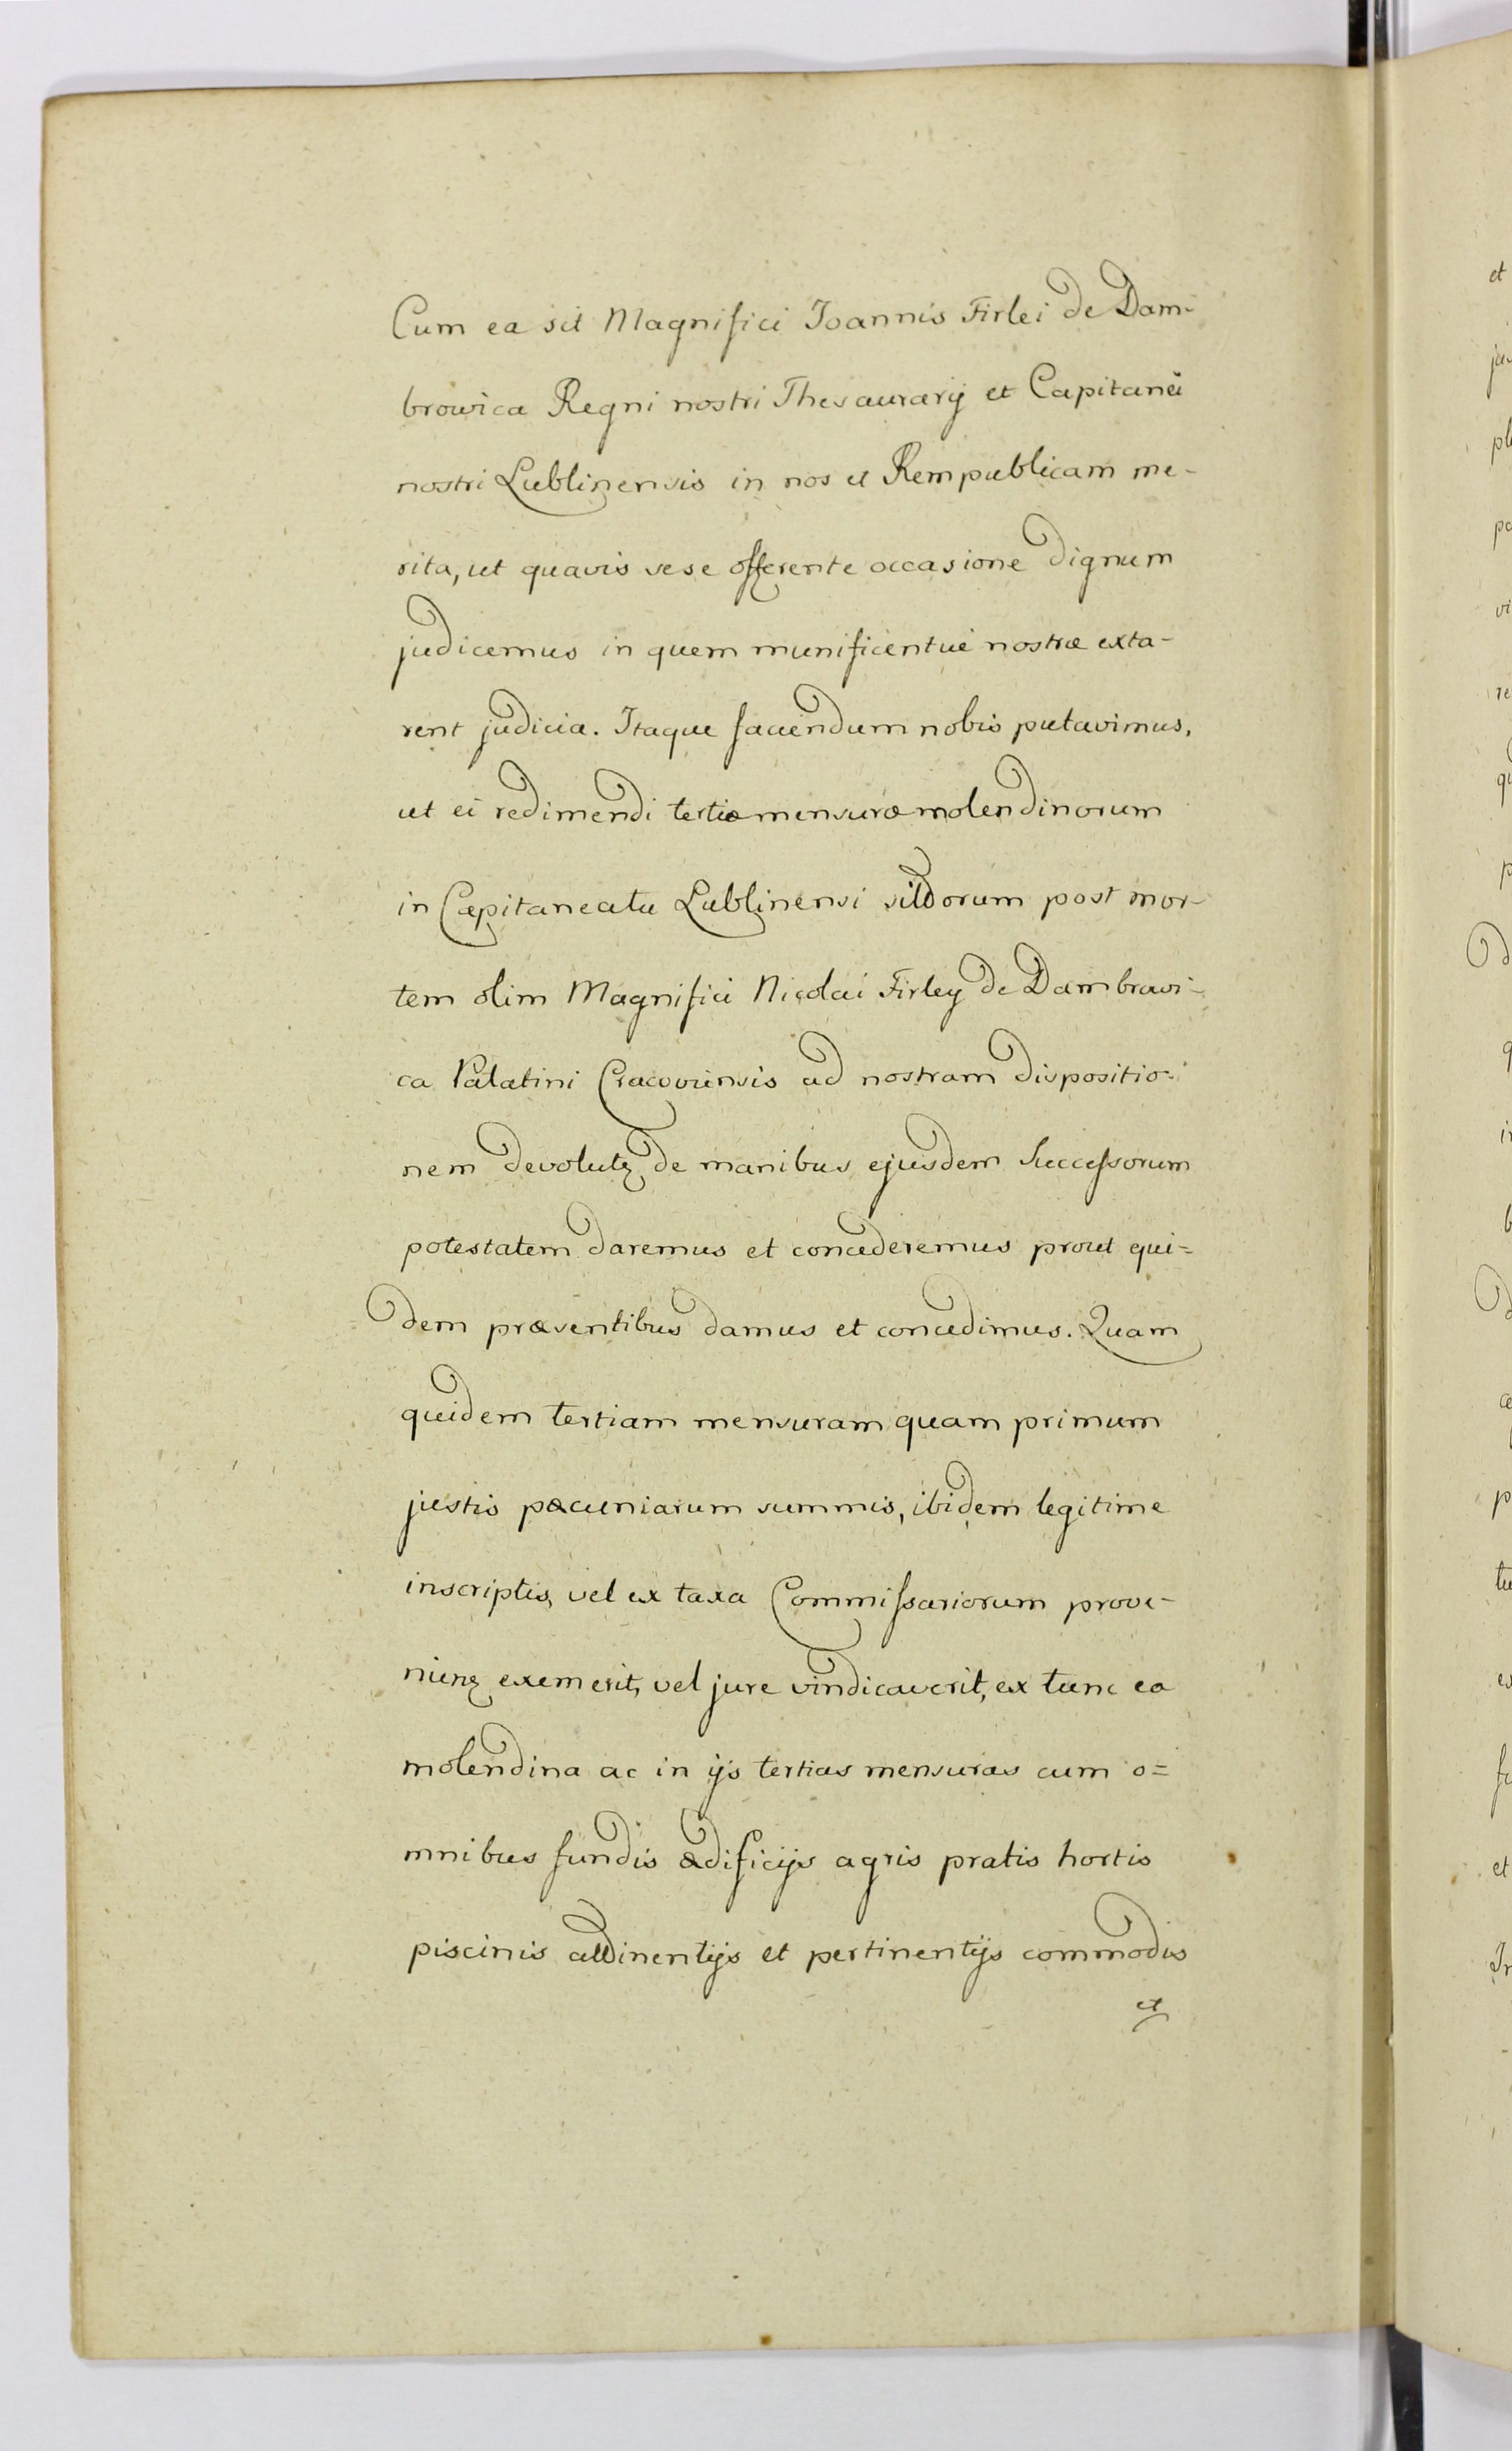 Cum ea sit Magnifici Joannis Firlei de Dam-
browica Regni nostri Thesaurarij et Capitanei
nostri Lublinensis in nos et Rempublicam me-
rita, ut quavis sese offerente occasione dignum
judicemus in quem munificentiæ nostræ exta-
rent judicia. Itaque faciendum nobis putavimus,
ut ei redimendi tertiæ mensuræ molendinorum
in Capitaneatu Lublinensi sitorum post mor-
tem olim Magnifici Nicolai Firley de Dambrowi-
ca Palatini Cracoviensis ad nostram dispositio-
nem devolutę de manibus ejusdem Successorum
potestatem daremus et concederemus prout qui=
dem præsentibus damus et concedimus. Quam
quidem tertiam mensuram quam primum
justis pæcuniarum summis, ibidem legitime
inscriptis, vel ex taxa Commissariorum prove-
exemerit, vel jure vindicaverit, ex tunc ea
molendina ac in ijs tertias mensuras cum o=
mnibus fundis ædificijs agris pratis hortis
piscinis attinentijs et pertinentijs commodis
et
et
p
in